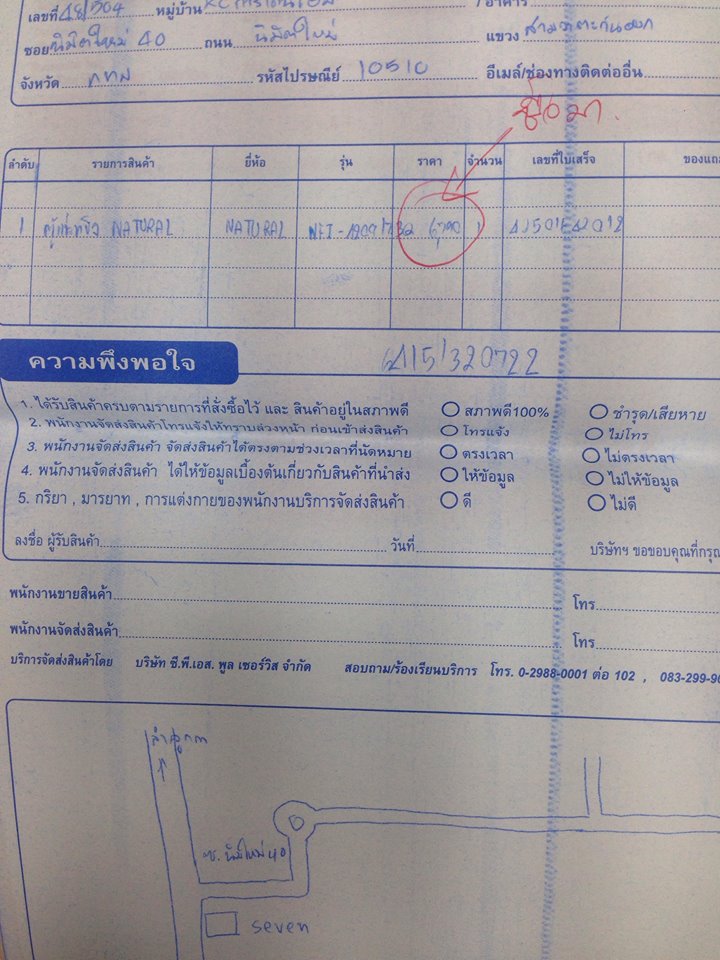 เลขที่ 48/504 หมู่บ้าน
ซอย นิมิตใหม่ 40 ถนน นิมิตใหม่ แขวง สามวาตะวันออก
จังหวัด กทม รหัสไปรษณีย์ 10510 อีเมล์/ช่องทางติดต่ออื่น
ซื้อมา
ลำดับ รายการสินค้า ยี่ห้อ รุ่น ราคา จำนวน เลขที่ใบเสร็จ
1 ตู้แช่แข็ง NATURAL NATURAL 6,790 1
ความพึงพอใจ 64151320722
1. ได้รับสินค้าครบตามรายการที่สั่งซื้อไว้ และ สินค้าอยู่ในสภาพดี สภาพดี100% ชำรุด/เสียหาย
2. พนักงานจัดส่งสินค้าโทรแจ้งให้ทราบล่วงหน้า ก่อนเข้าส่งสินค้า โทรแจ้ง ไม่โทร
3. พนักงานจัดส่งสินค้า จัดส่งสินค้าได้ตรงตามช่วงเวลาที่นัดหมาย ตรงเวลา ไม่ตรงเวลา
4. พนักงานจัดส่งสินค้า ได้ให้ข้อมูลเบื้องต้นเกี่ยวกับสินค้าที่นำส่ง ให้ข้อมูล ไม่ให้ข้อมูล
5. กริยา , มารยาท , การแต่งกายของพนักงานบริการจัดส่งสินค้า ดี ไม่ดี
ลงชื่อ ผู้รับสินค้า วันที่ บริษัทฯ ขอขอบคุณที่กรุ
พนักงานขายสินค้า โทร
พนักงานจัดส่งสินค้า โทร
บริการจัดส่งสินค้าโดย บริษัท ซี.พี.เอส. พูล เซอร์วิส จำกัด สอบถาม/ร้องเรียนบริการ โทร. 0-2988-0001 ต่อ 102 , 083-299-90
ลำลูกกา
ซ. นิมิตใหม่ 40
seven